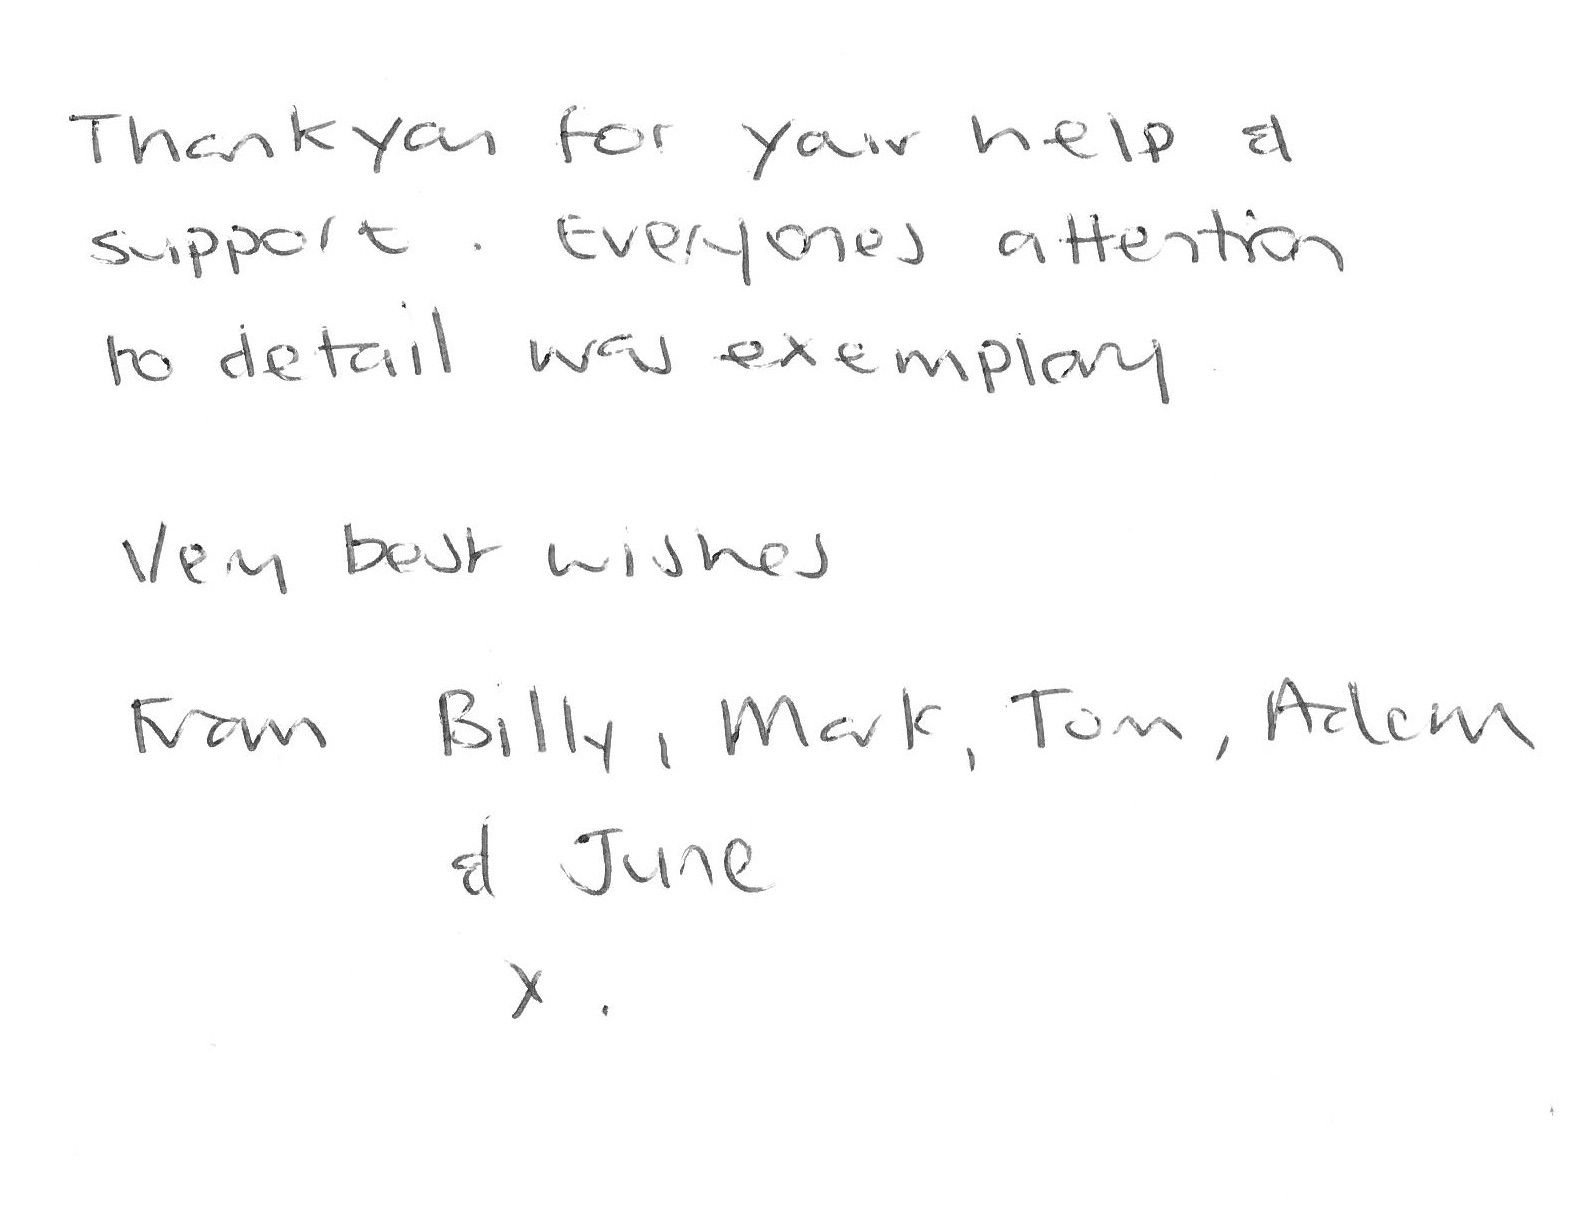 Thankyou for your help &
support. Everyones attention
to detail was exemplary
Very best wishes
From Billy, Mark, Tom, Adam
& June
x.